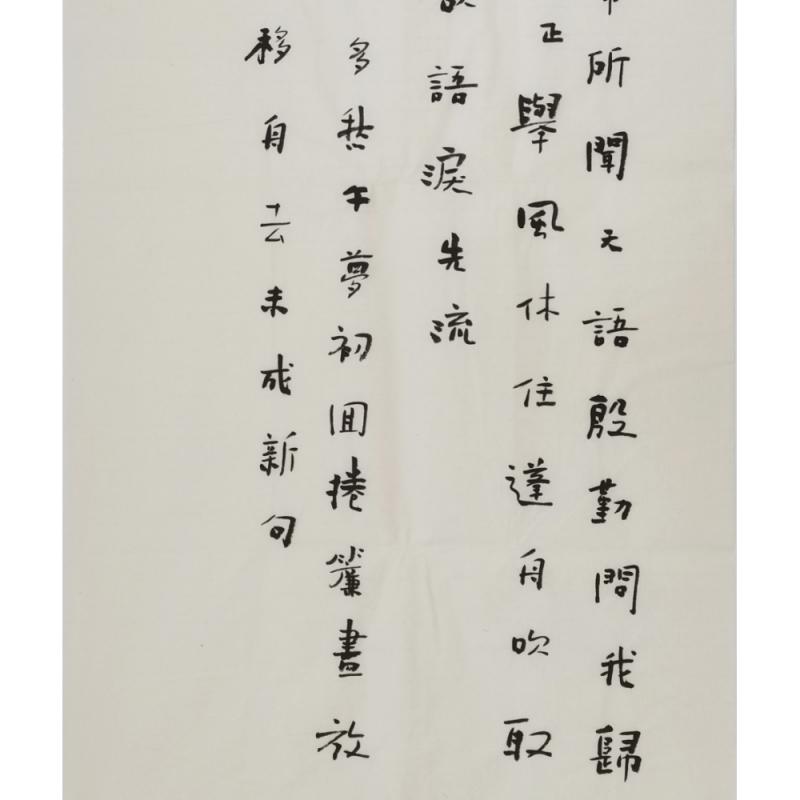 所聞天語殷勤問我歸
正舉風休住蓬舟吹取
語淚先流
多愁午夢初囬捲簾晝放
移舟去未成新句